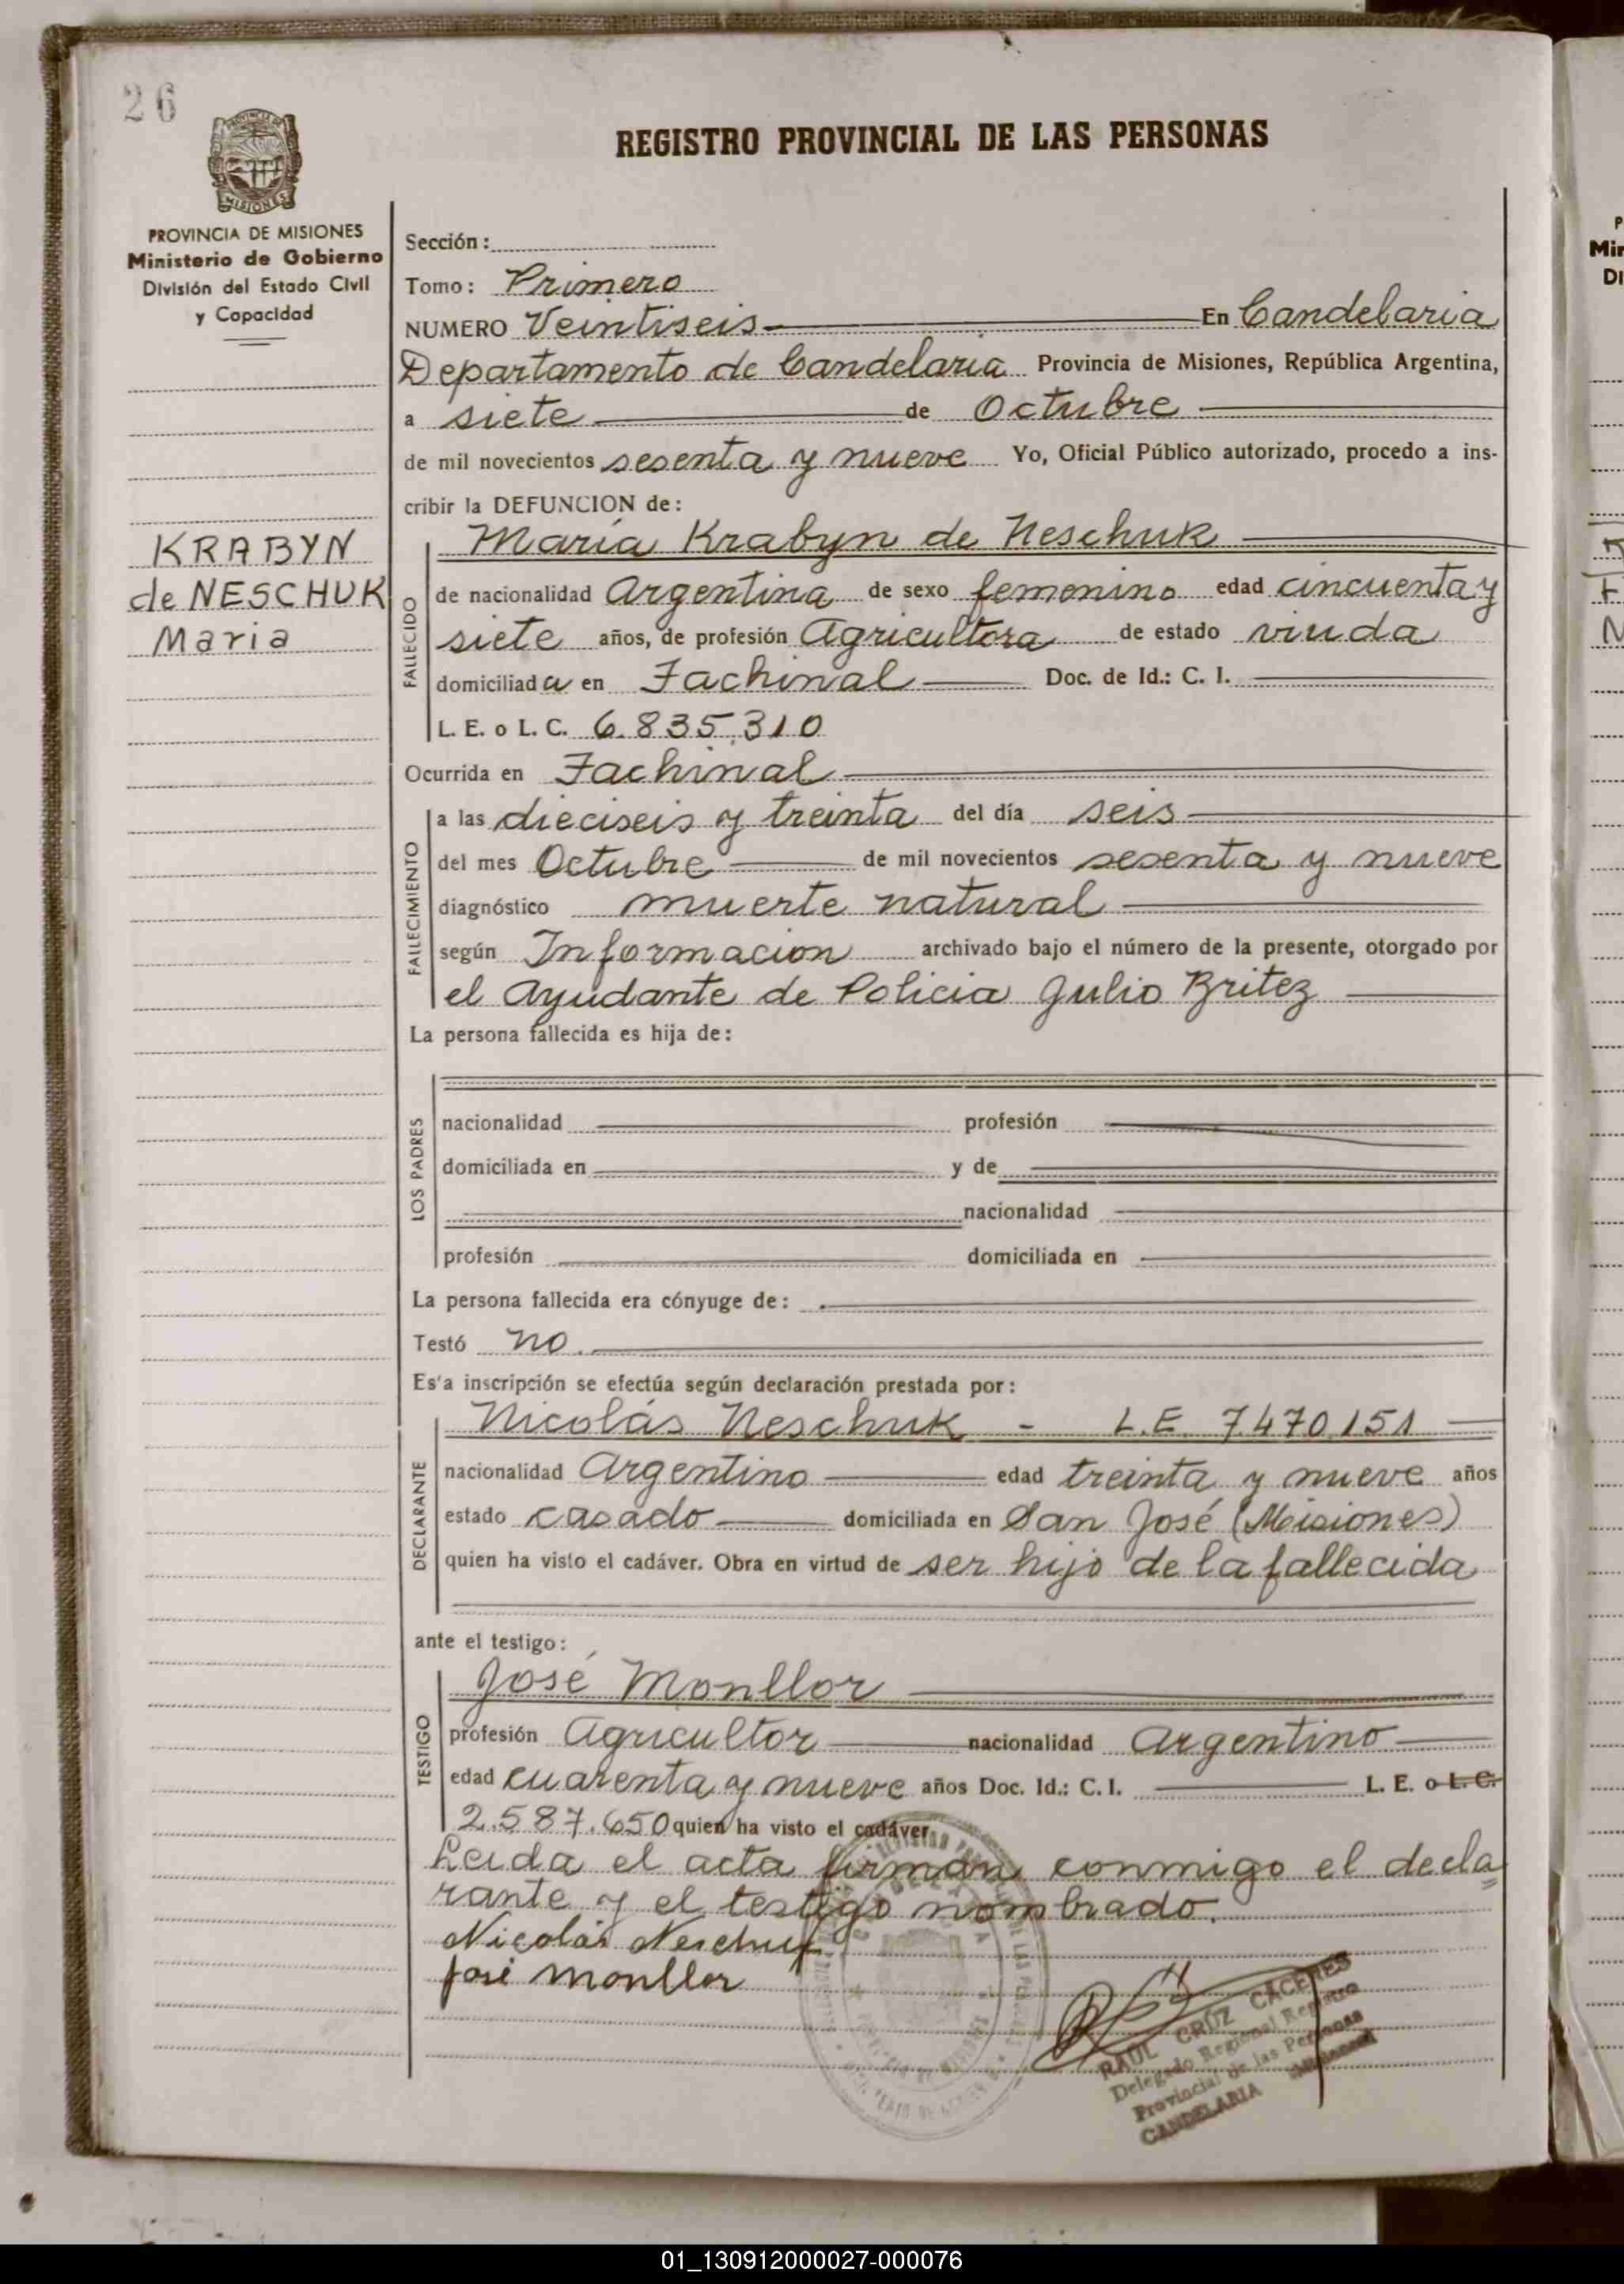 26
REGISTRO PROVINCIAL DE LAS PERSONAS
PROVINCIA DE MISIONES
MISIONES
PROVINCIA DE MISIONES
Ministerio de Gobierno
División del Estado Civil
y Capacidad
KRABYN
de NESCHUK
Maria
Sección:
Tomo: Primero
NUMERO Veintiseis En Candelaria
Departamento de Candelaria Provincia de Misiones, República Argentina,
a siete de Octubre
de mil novecientos sesenta y nueve Yo, Oficial Público autorizado, procedo a ins-
cribir la DEFUNCION de:
FALLECIDO
María Krabyn de Neschuk
de nacionalidad Argentina de sexo femenino edad cincuenta y
siete años, de profesión Agricultora de estado viuda
domiciliada en Fachinal Doc. de Id.: C. I.
L. E. o L. C. 6.835.310
Ocurrida en Fachinal
FALLECIMIENTO
a las dieciseis y treinta del día seis
del mes Octubre de mil novecientos sesenta y nueve
diagnóstico muerte natural
según Informacion archivado bajo el número de la presente, otorgado por
el Ayudante de Policia Julio Britez
La persona fallecida es hija de:
LOS PADRES
nacionalidad profesión
domiciliada en y de
nacionalidad
profesión domiciliada en
La persona fallecida era cónyuge de:
Testó no.
Es'a inscripción se efectúa según declaración prestada por:
DECLARANTE
Nicolás Neschuk - L.E. 7.470.151
nacionalidad Argentino edad treinta y nueve años
estado casado domiciliada en San José (Misiones)
quien ha visto el cadáver. Obra en virtud de ser hijo de la fallecida
ante el testigo:
TESTIGO
José Monllor
profesión Agricultor nacionalidad Argentino
edad cuarenta y nueve años Doc. Id.: C. I. L. E. o L. C.
2.587.650 quien ha visto el cadáver.
Leida el acta firman conmigo el decla
rante y el testigo nombrado.
Nicolás Neschuk
José Monllor
RAUL CRUZ CACERES
Delegado Regional Registro
Provincial de las Personas
CANDELARIA
P
Mir
Di
01_130912000027-000076